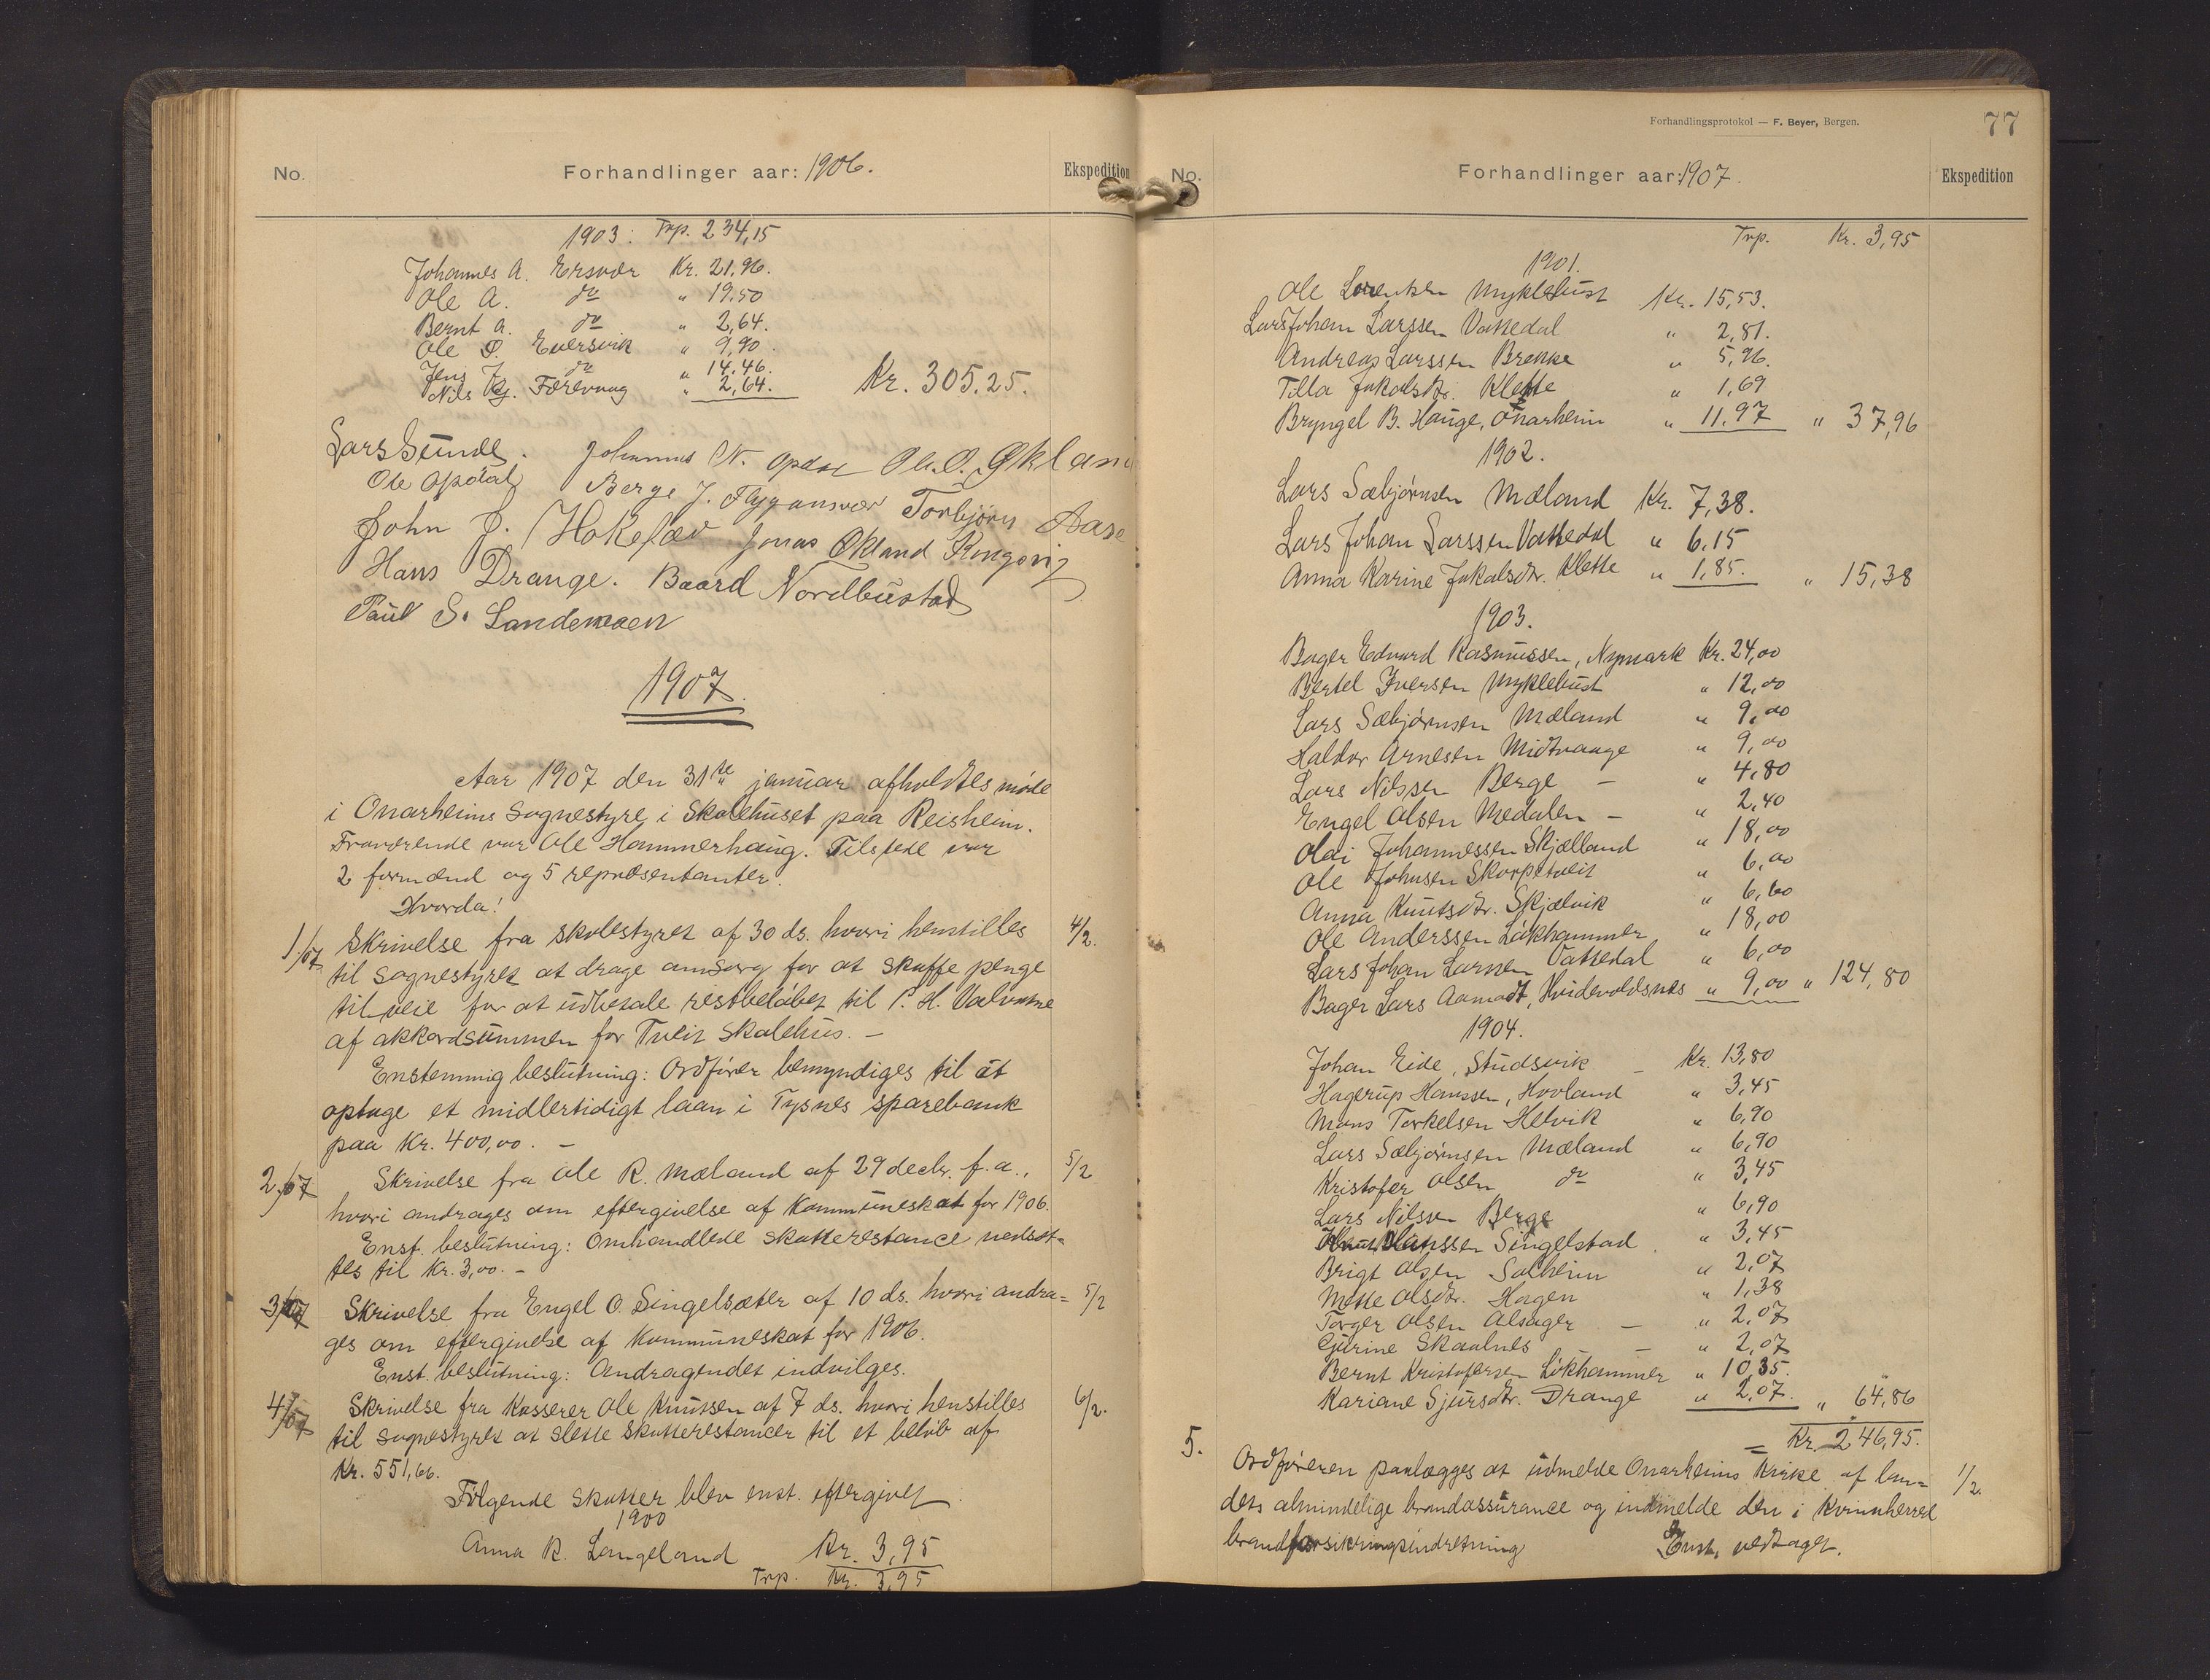 No.
Forhandlinger aar: 1906.
Ekspedition
1903: Trp. 234,15
Johannes A. Ersvær Kr. 21,96.
Ole A. do " 19,50
Bernt A. do " 2,64.
Ole O. Eversvik " 9,90.
Jens J. do " 14,46.
Nils Kj. Færevaag " 2,64. Kr. 305,25.
Lars Sunde. Johannes N. Opdal Ole O. Økland
Ole Opdal Berge J. Flygansvær Torbjørn Aase
John J. Hokeløv Jonas Økland Kongsvig
Hans Drange. Baard Nordbustad
Paul S. Landemoen
1907.
Aar 1907 den 31te januar afholdtes møde
i Onarheims sognestyre i Skolehuset paa Reisheim.
Fraværende var Ole Hammerhaug. Tilstede var
2 formænd og 5 repræsentanter.
Hvorda!
1/07 Skrivelse fra skolestyret af 30 ds. hvori henstilles 4/2.
til sognestyret at drage omsorg for at skaffe penge
til veie for at udbetale restbeløbet til P. H. Valvatne
af akkordsummen for Tveit Skolehus. –
Enstemmig beslutning: Ordfører bemyndiges til at
optage et midlertidigt laan i Tysnes sparebank
paa Kr. 400,00. –
2/07 Skrivelse fra Ole R. Mæland af 29 decbr. f.a., 5/2
hvori andrages om eftergivelse af Kommuneskat for 1906.
Enst. beslutning: Omhandlede skatterestance nedsæt=
tes til Kr. 3,00. –
3/07 Skrivelse fra Engel O. Singelsæter af 10 ds. hvori andra= 5/2
ges om eftergivelse af Kommuneskat for 1906.
Enst. beslutning: Andragendet indvilges.
4/07 Skrivelse fra Kasserer Ole Knutsen af 7 ds. hvori henstilles 6/2.
til sognestyret at slette skatterestancer til et beløb af
Kr. 551,66.
Følgende skatter blev enst. eftergivet
1900
Anna R. Langeland Kr. 3,95
Trp. Kr. 3,95
Forhandlingsprotokol — F. Beyer, Bergen.
77
No.
Forhandlinger aar: 1907.
Ekspedition
Trp. Kr. 3,95
1901.
Ole Lorentsen Myklebust Kr. 15,53.
Lars Johan Larssen Vattedal " 2,81.
Andreas Larssen Brekke " 5,96.
Tilla Jakobsdtr. Klette " 1,69
Bryngel B. Hauge, Onarheim " 11,97 " 37,96
1902.
Lars Sæbjørnsen Mæland Kr. 7,38.
Lars Johan Larssen Vattedal " 6,15
Anna Karine Jakobsdtr. Klette " 1,85. " 15,38
1903.
Bager Edvard Rasmussen, Nymark Kr. 24,00
Bertel Iversen Myklebust " 12,00
Lars Sæbjørnsen Mæland " 9,00
Haldor Arnesen Midtvaage " 9,00
Lars Nilssen Berge – " 4,80
Engel Olsen Medalen – " 2,40
Oldi Johannessen Skjælland " 18,00
Ole Johnsen Skorpetveit " 6,00
Anna Knutsdtr. Skjælvik " 6,60
Ole Anderssen Løkhammer " 18,00
Lars Johan Larssen Vattedal " 6,00
Bager Lars Aamodt, Hvidevoldsnes " 9,00 " 124,80
1904.
Johan Eide, Studsvik – Kr. 13,80
Hagerup Hanssen, Hovland " 3,45
Mons Torkelsen Helvik " 6,90
Lars Sæbjørnsen Mæland " 6,90
Kristofer Olsen do " 3,45
Lars Nilssen Berge " 6,90
Hanssen Singelstad " 3,45
Brigt Olsen Solheim " 2,07
Mette Olsdtr. Hagen " 1,38
Torger Olsen Alsager – " 2,07
Gurine Skaalnes – " 2,07
Bernt Kristofersen Løkhammer " 10,35.
Kariane Sjursdtr. Drange " 2,07. " 64,86
= Kr. 246,95.
5. Ordføreren paalægges at udmelde Onarheims Kirke af lan= 1/2.
dets almindelige brandassurance og indmelde den i Kvinnherred
brandforsikringsindretning Enst. vedtaget.